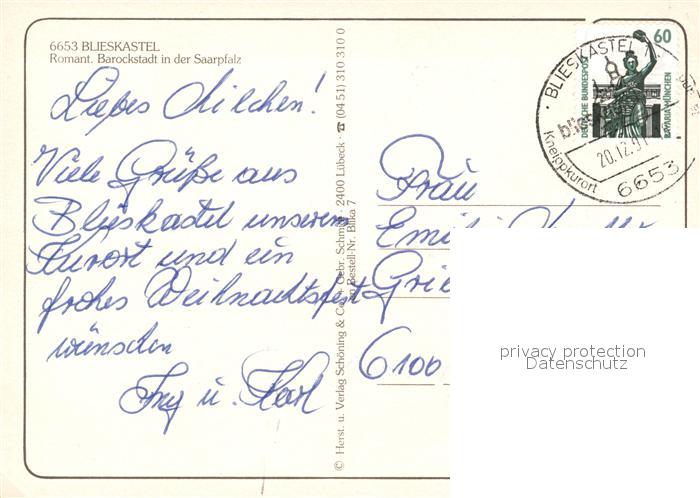 6653 BLIESKASTEL
Romant. Barockstadt in der Saarpfalz
Liebes Milchen!
Viele Grüße aus
Blieskastel unserem
Kurort und ein
frohes Weihnachtsfest
wünschen
Ing u. Karl
© Herst. u. Verlag Schöning & Co + Gebr. Schmidt · 2400 Lübeck · ☎ (04 51) 310 310 0
Bestell-Nr. Blika 7
60
DEUTSCHE BUNDESPOST
BAVARIA MÜNCHEN
BLIESKASTEL 1
20.12.91
Kneippkurort
6653
Frau
6100
privacy protection
Datenschutz